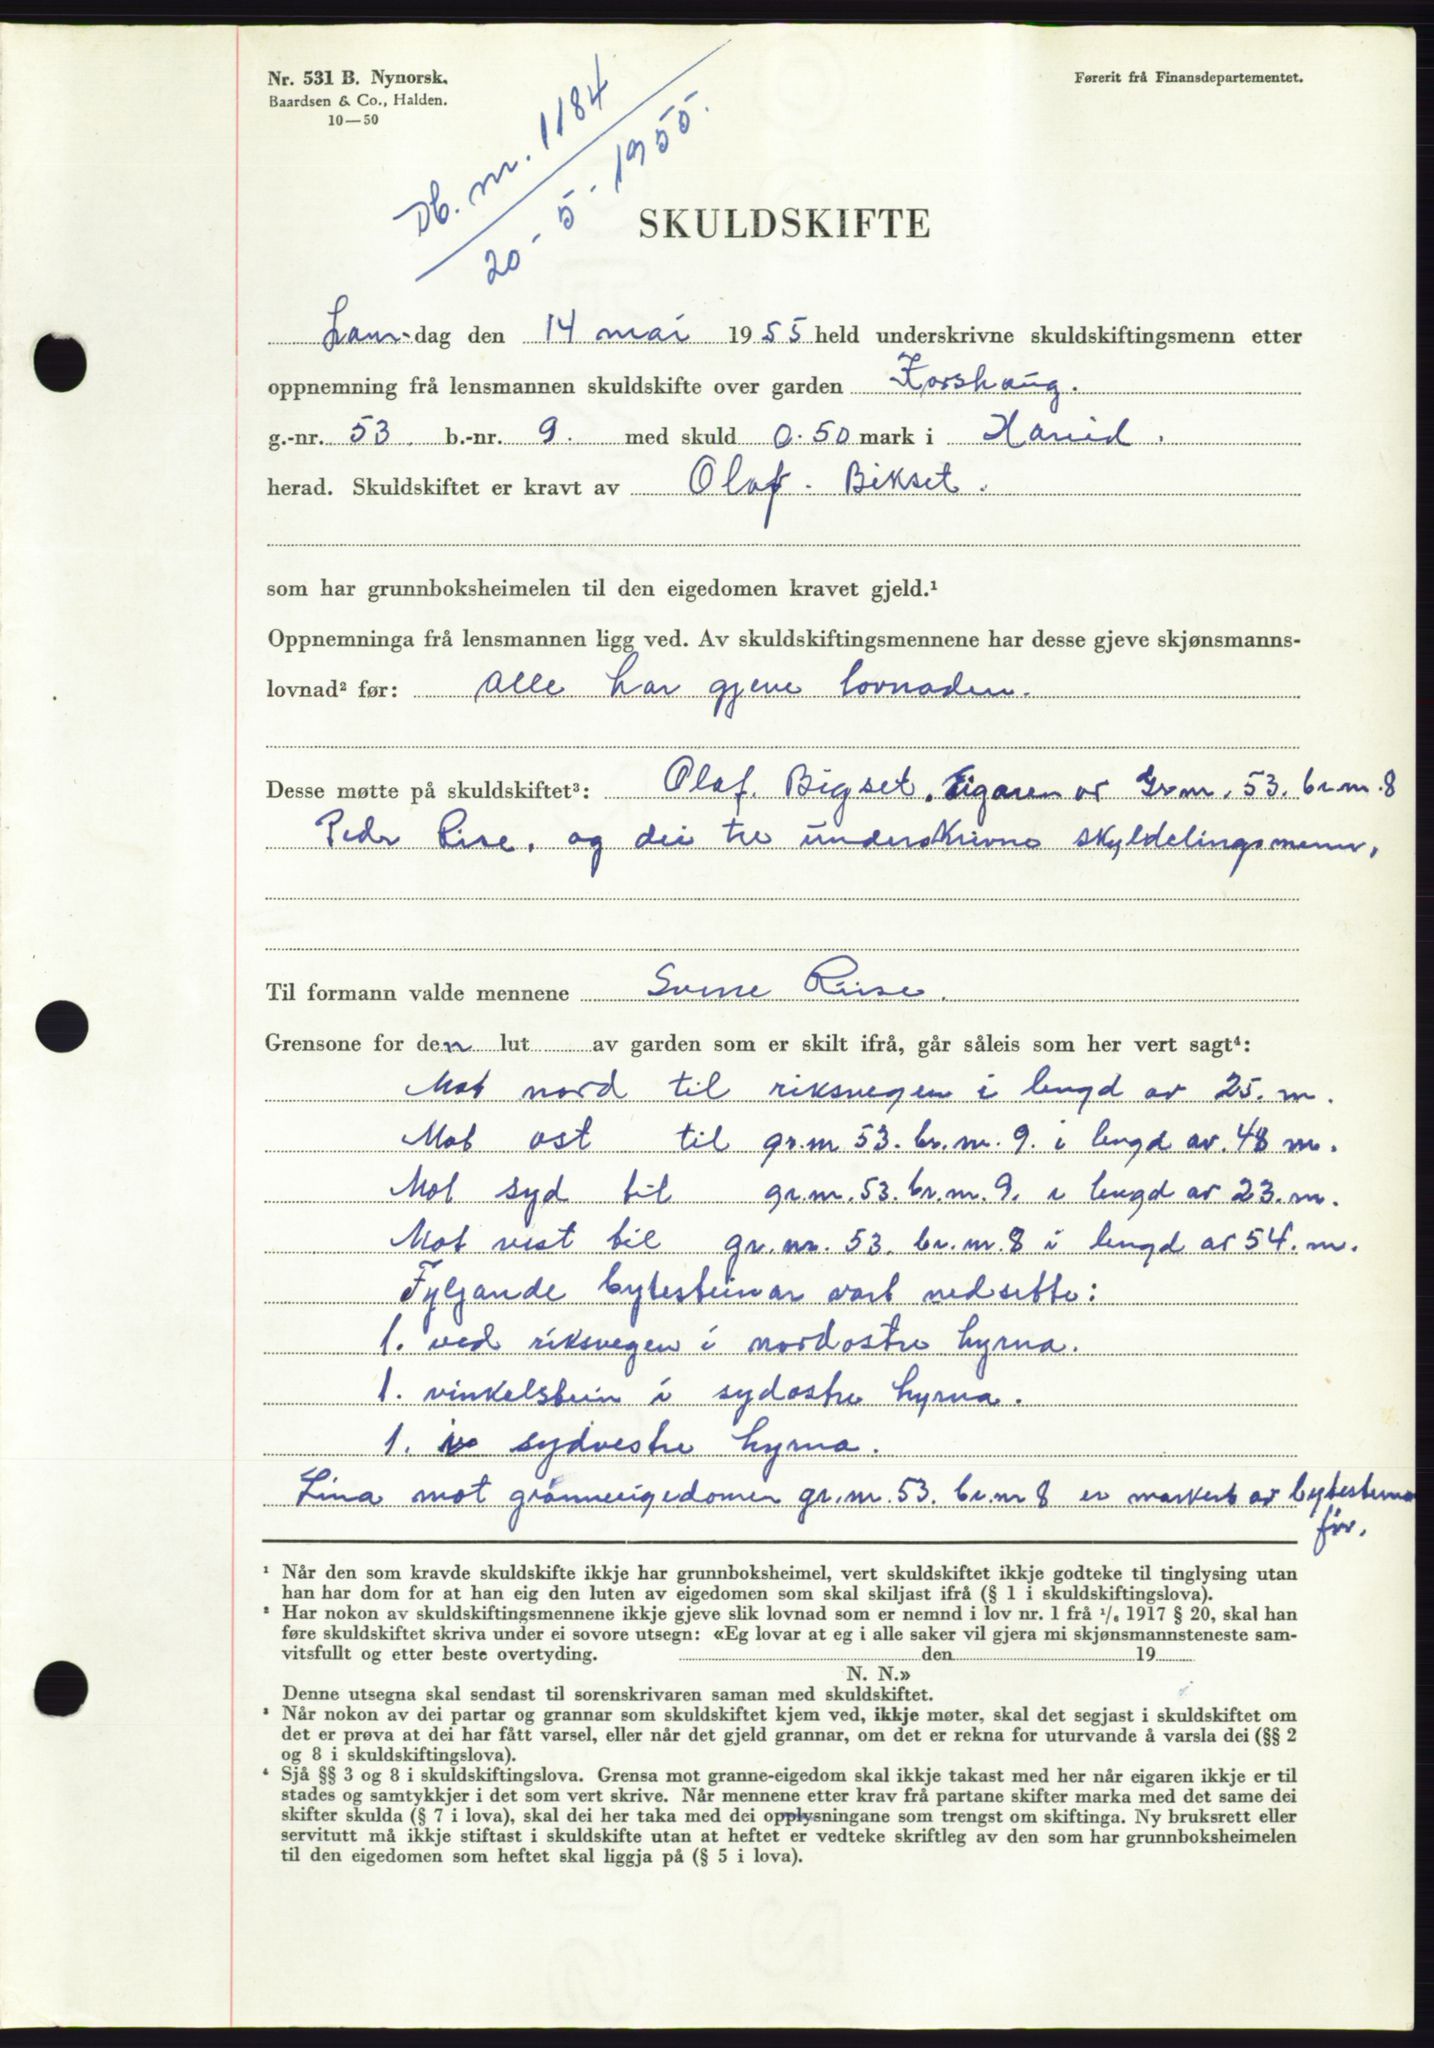 Nr. 531 B. Nynorsk.
Baardsen & Co., Halden.
10—50
Førerit frå Finansdepartementet.
Db. nr. 1184
20-5-1955.
SKULDSKIFTE
Laur-dag den 14 mai 1955 held underskrivne skuldskiftingsmenn etter
oppnemning frå lensmannen skuldskifte over garden Korshaug.
g.-nr. 53. b.-nr. 9. med skuld 0.50 mark i Hareid.
herad. Skuldskiftet er kravt av Olaf. Bikset.
som har grunnboksheimelen til den eigedomen kravet gjeld.¹
Oppnemninga frå lensmannen ligg ved. Av skuldskiftingsmennene har desse gjeve skjønsmanns-
lovnad² før: Alle har gjeve lovnaden.
Desse møtte på skuldskiftet³: Olaf. Bigset. Eigaren av Gr.nr. 53. br.nr. 8
Peder Rise. og dei tre underskrivne skyldelingsmenn.
Til formann valde mennene Sverre Riise.
Grensone for den lut av garden som er skilt ifrå, går såleis som her vert sagt⁴:
Mot nord til riksvegen i lengd av 25. m.
Mot ost til gr.nr. 53. br.nr. 9. i lengd av. 48 m.
Mot syd til gr.nr. 53. br.nr. 9. i lengd av 23. m.
Mot vest til gr.nr. 53. br.nr. 8 i lengd av 54. m.
Fylgjande bytesteinar vart nedsette:
1. ved riksvegen i nordostre hyrna.
1. vinkelstein i sydostre hyrna.
1. i sydvestre hyrna.
Lina mot granneeigedomen gr.nr. 53. br.nr 8 er markert av bytesteinar
før.
¹ Når den som kravde skuldskifte ikkje har grunnboksheimel, vert skuldskiftet ikkje godteke til tinglysing utan
han har dom for at han eig den luten av eigedomen som skal skiljast ifrå (§ 1 i skuldskiftingslova).
² Har nokon av skuldskiftingsmennene ikkje gjeve slik lovnad som er nemnd i lov nr. 1 frå ¹/₆ 1917 § 20, skal han
føre skuldskiftet skriva under ei sovore utsegn: «Eg lovar at eg i alle saker vil gjera mi skjønsmannsteneste sam-
vitsfullt og etter beste overtyding. den 19
N. N.»
Denne utsegna skal sendast til sorenskrivaren saman med skuldskiftet.
³ Når nokon av dei partar og grannar som skuldskiftet kjem ved, ikkje møter, skal det segjast i skuldskiftet om
det er prøva at dei har fått varsel, eller når det gjeld grannar, om det er rekna for uturvande å varsla dei (§§ 2
og 8 i skuldskiftingslova).
⁴ Sjå §§ 3 og 8 i skuldskiftingslova. Grensa mot granne-eigedom skal ikkje takast med her når eigaren ikkje er til
stades og samtykkjer i det som vert skrive. Når mennene etter krav frå partane skifter marka med det same dei
skifter skulda (§ 7 i lova), skal dei her taka med dei opplysningane som trengst om skiftinga. Ny bruksrett eller
servitutt må ikkje stiftast i skuldskifte utan at heftet er vedteke skriftleg av den som har grunnboksheimelen
til den eigedomen som heftet skal liggja på (§ 5 i lova).